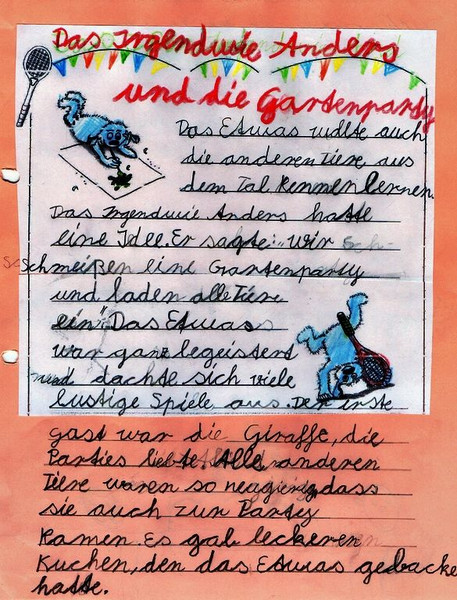 Das Irgendwie Anders
und die Gartenparty
Das Etwas wollte auch
die anderen Tiere aus
dem Tal kennen lernen.
Das Irgendwie Anders hatte
eine Idee. Er sagte: "wir
Schmeißen eine Gartenparty
und laden alle Tiere
ein". Das Etwas
war ganz begeistert
und dachte sich viele
lustige Spiele aus. Der erste
Gast war die Giraffe, die
Parties liebte. Alle anderen
Tiere waren so neugierig, dass
sie auch zur Party
kamen. Es gab leckeren
Kuchen, den das Etwas gebacke
hatte.